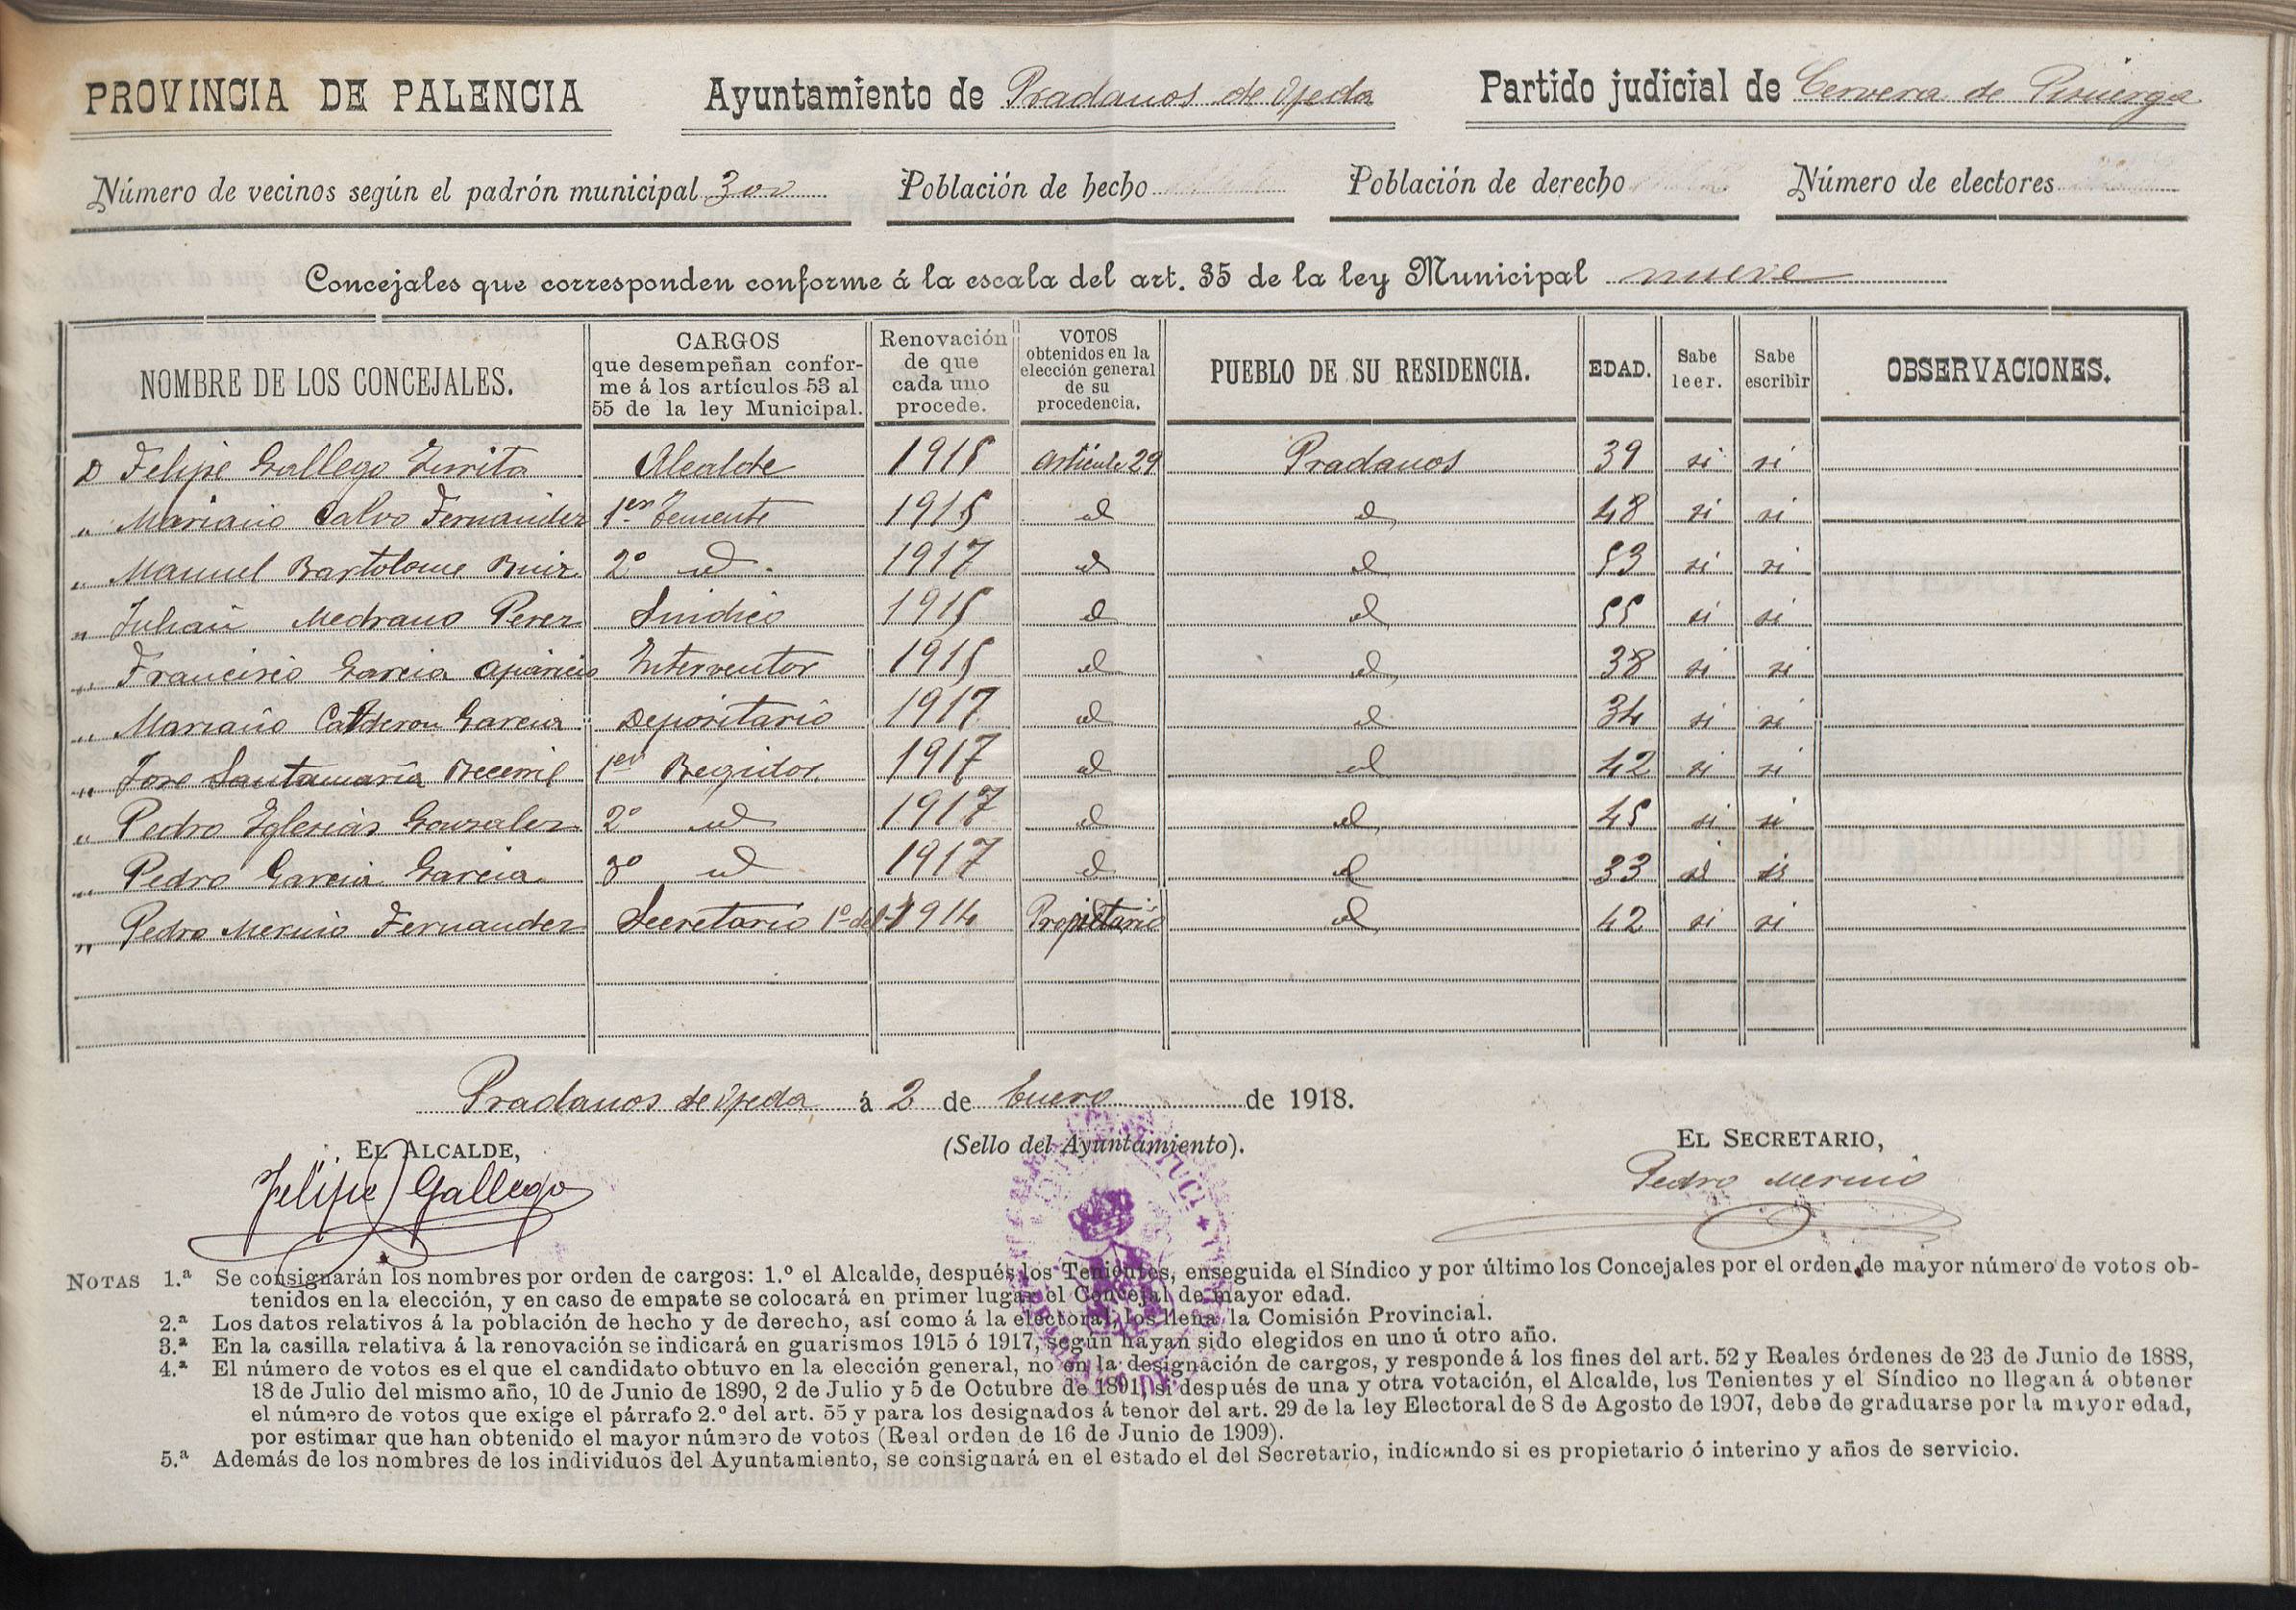 PROVINCIA DE PALENCIA Ayuntamiento de Pradanos de Ojeda Partido judicial de Cervera de Pisuerga
Número de vecinos según el padrón municipal 300 Población de hecho Población de derecho Número de electores
Concejales que corresponden conforme á la escala del art. 35 de la ley Municipal nueve
NOMBRE DE LOS CONCEJALES. CARGOS que desempeñan confor-me á los artículos 53 al 55 de la ley Municipal. Renovación de que cada uno procede. VOTOS obtenidos en la elección general de su procedencia. PUEBLO DE SU RESIDENCIA. EDAD. Sabe leer. Sabe escribir OBSERVACIONES.
D Felipe Gallego Zurita Alcalde 1915 Articulo 29 Pradanos 39 si si
„ Mariano Calvo Fernandez 1er Teniente 1915 id id 48 si si
„ Manuel Bartolome Ruiz 2º id. 1917 id id 53 si si
„ Julian Medrano Perez Sindico 1915 id id 55 si si
„ Francisco Garcia Aparicio Interventor 1915 id id 38 si si
„ Mariano Calderon Garcia Depositario 1917 id id 34 si si
„ Jose Santamaria Becerril 1er Regidor 1917 id id 42 si si
„ Pedro Iglesias Gonzalez 2º id 1917 id id 45 si si
„ Pedro Garcia Garcia 3º id 1917 id id 33 si si
„ Pedro Merino Fernandez Secretario 1914 Propietario id 42 si si
Pradanos de Ojeda á 2 de Enero de 1918.
EL ALCALDE, (Sello del Ayuntamiento). EL SECRETARIO,
Felipe Gallego Pedro Merino
NOTAS 1.ª Se consignarán los nombres por orden de cargos: 1.º el Alcalde, después los Tenientes, enseguida el Síndico y por último los Concejales por el orden de mayor número de votos ob-
tenidos en la elección, y en caso de empate se colocará en primer lugar el Concejal de mayor edad.
2.ª Los datos relativos á la población de hecho y de derecho, así como á la electoral, los llena la Comisión Provincial.
3.ª En la casilla relativa á la renovación se indicará en guarismos 1915 ó 1917, según hayan sido elegidos en uno ú otro año.
4.ª El número de votos es el que el candidato obtuvo en la elección general, no en la designación de cargos, y responde á los fines del art. 52 y Reales órdenes de 23 de Junio de 1888,
18 de Julio del mismo año, 10 de Junio de 1890, 2 de Julio y 5 de Octubre de 1891, si después de una y otra votación, el Alcalde, los Tenientes y el Síndico no llegan á obtener
el número de votos que exige el párrafo 2.º del art. 55 y para los designados á tenor del art. 29 de la ley Electoral de 8 de Agosto de 1907, debe de graduarse por la mayor edad,
por estimar que han obtenido el mayor número de votos (Real orden de 16 de Junio de 1909).
5.ª Además de los nombres de los individuos del Ayuntamiento, se consignará en el estado el del Secretario, indicando si es propietario ó interino y años de servicio.